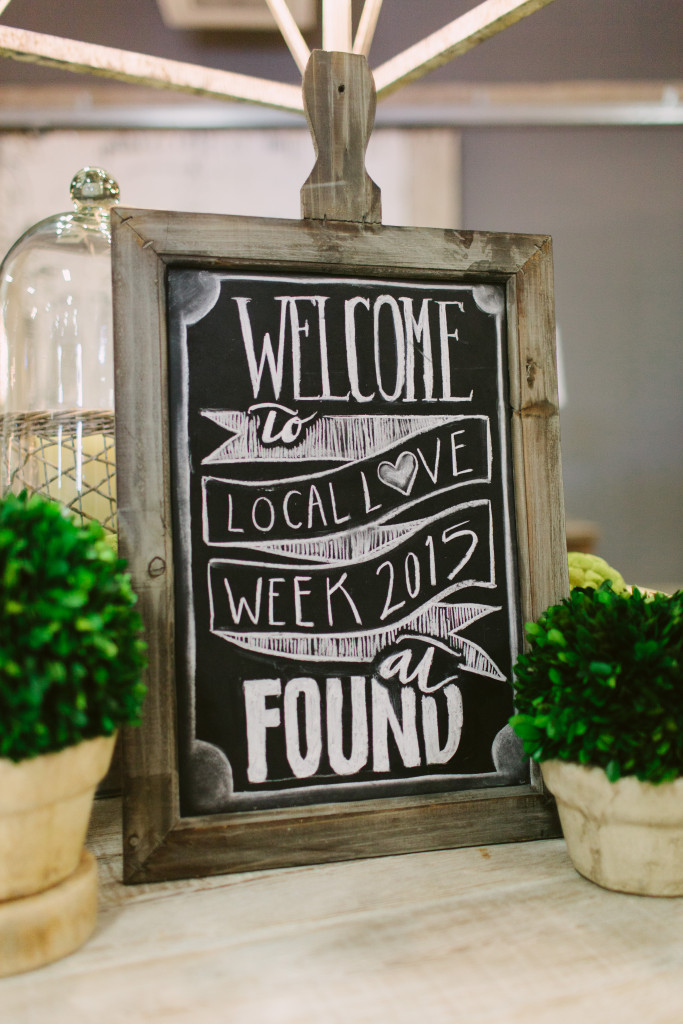 WELCOME
to
LOCAL LOVE
WEEK 2015
at
FOUND